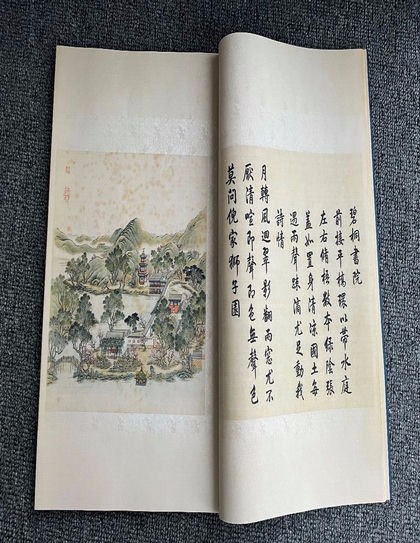 碧桐書院
前接平橋環以帶水庭
左右修梧數本綠陰張
蓋如置身清涼國土每
遇雨聲疎滴尤足動我
詩情
月轉風迴翠影翻雨窗尤不
厭清喧即聲即色無聲色
莫問倪家獅子園